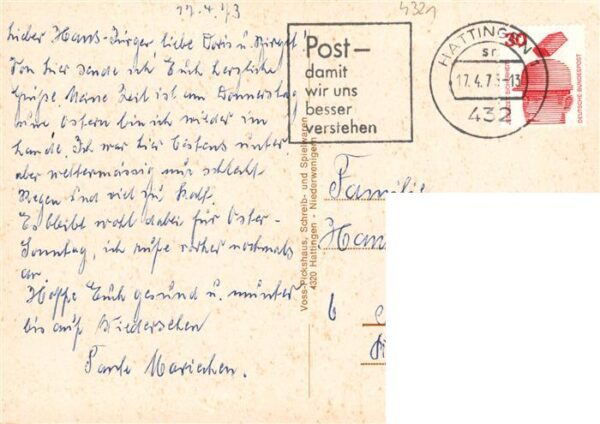 17.4.73
4321
Lieber Hans-Jürgen liebe Doris u.
Von hier sende ich Euch herzliche
Grüße. Meine Zeit ist am Donnerstag
um Ostern bin ich wieder im
Lande. Ich war hier bestens unter
aber wettermässig nur schlecht
Regen und viel zu kalt.
Es bleibt wohl dabei für Oster-
Sonntag, ich rufe vorher nochmals
an.
Hoffe Euch gesund u. munter
bis aufs Wiedersehen
Tante Mariechen.
Post-
damit
wir uns
besser
verstehen
HATTINGEN
sr
17.4.73-13
432
30
DEUTSCHE BUNDESPOST
Voss-Pickshaus, Schreib- und Spielwaren
4320 Hattingen - Niederwenigern
Familie
Hans
6